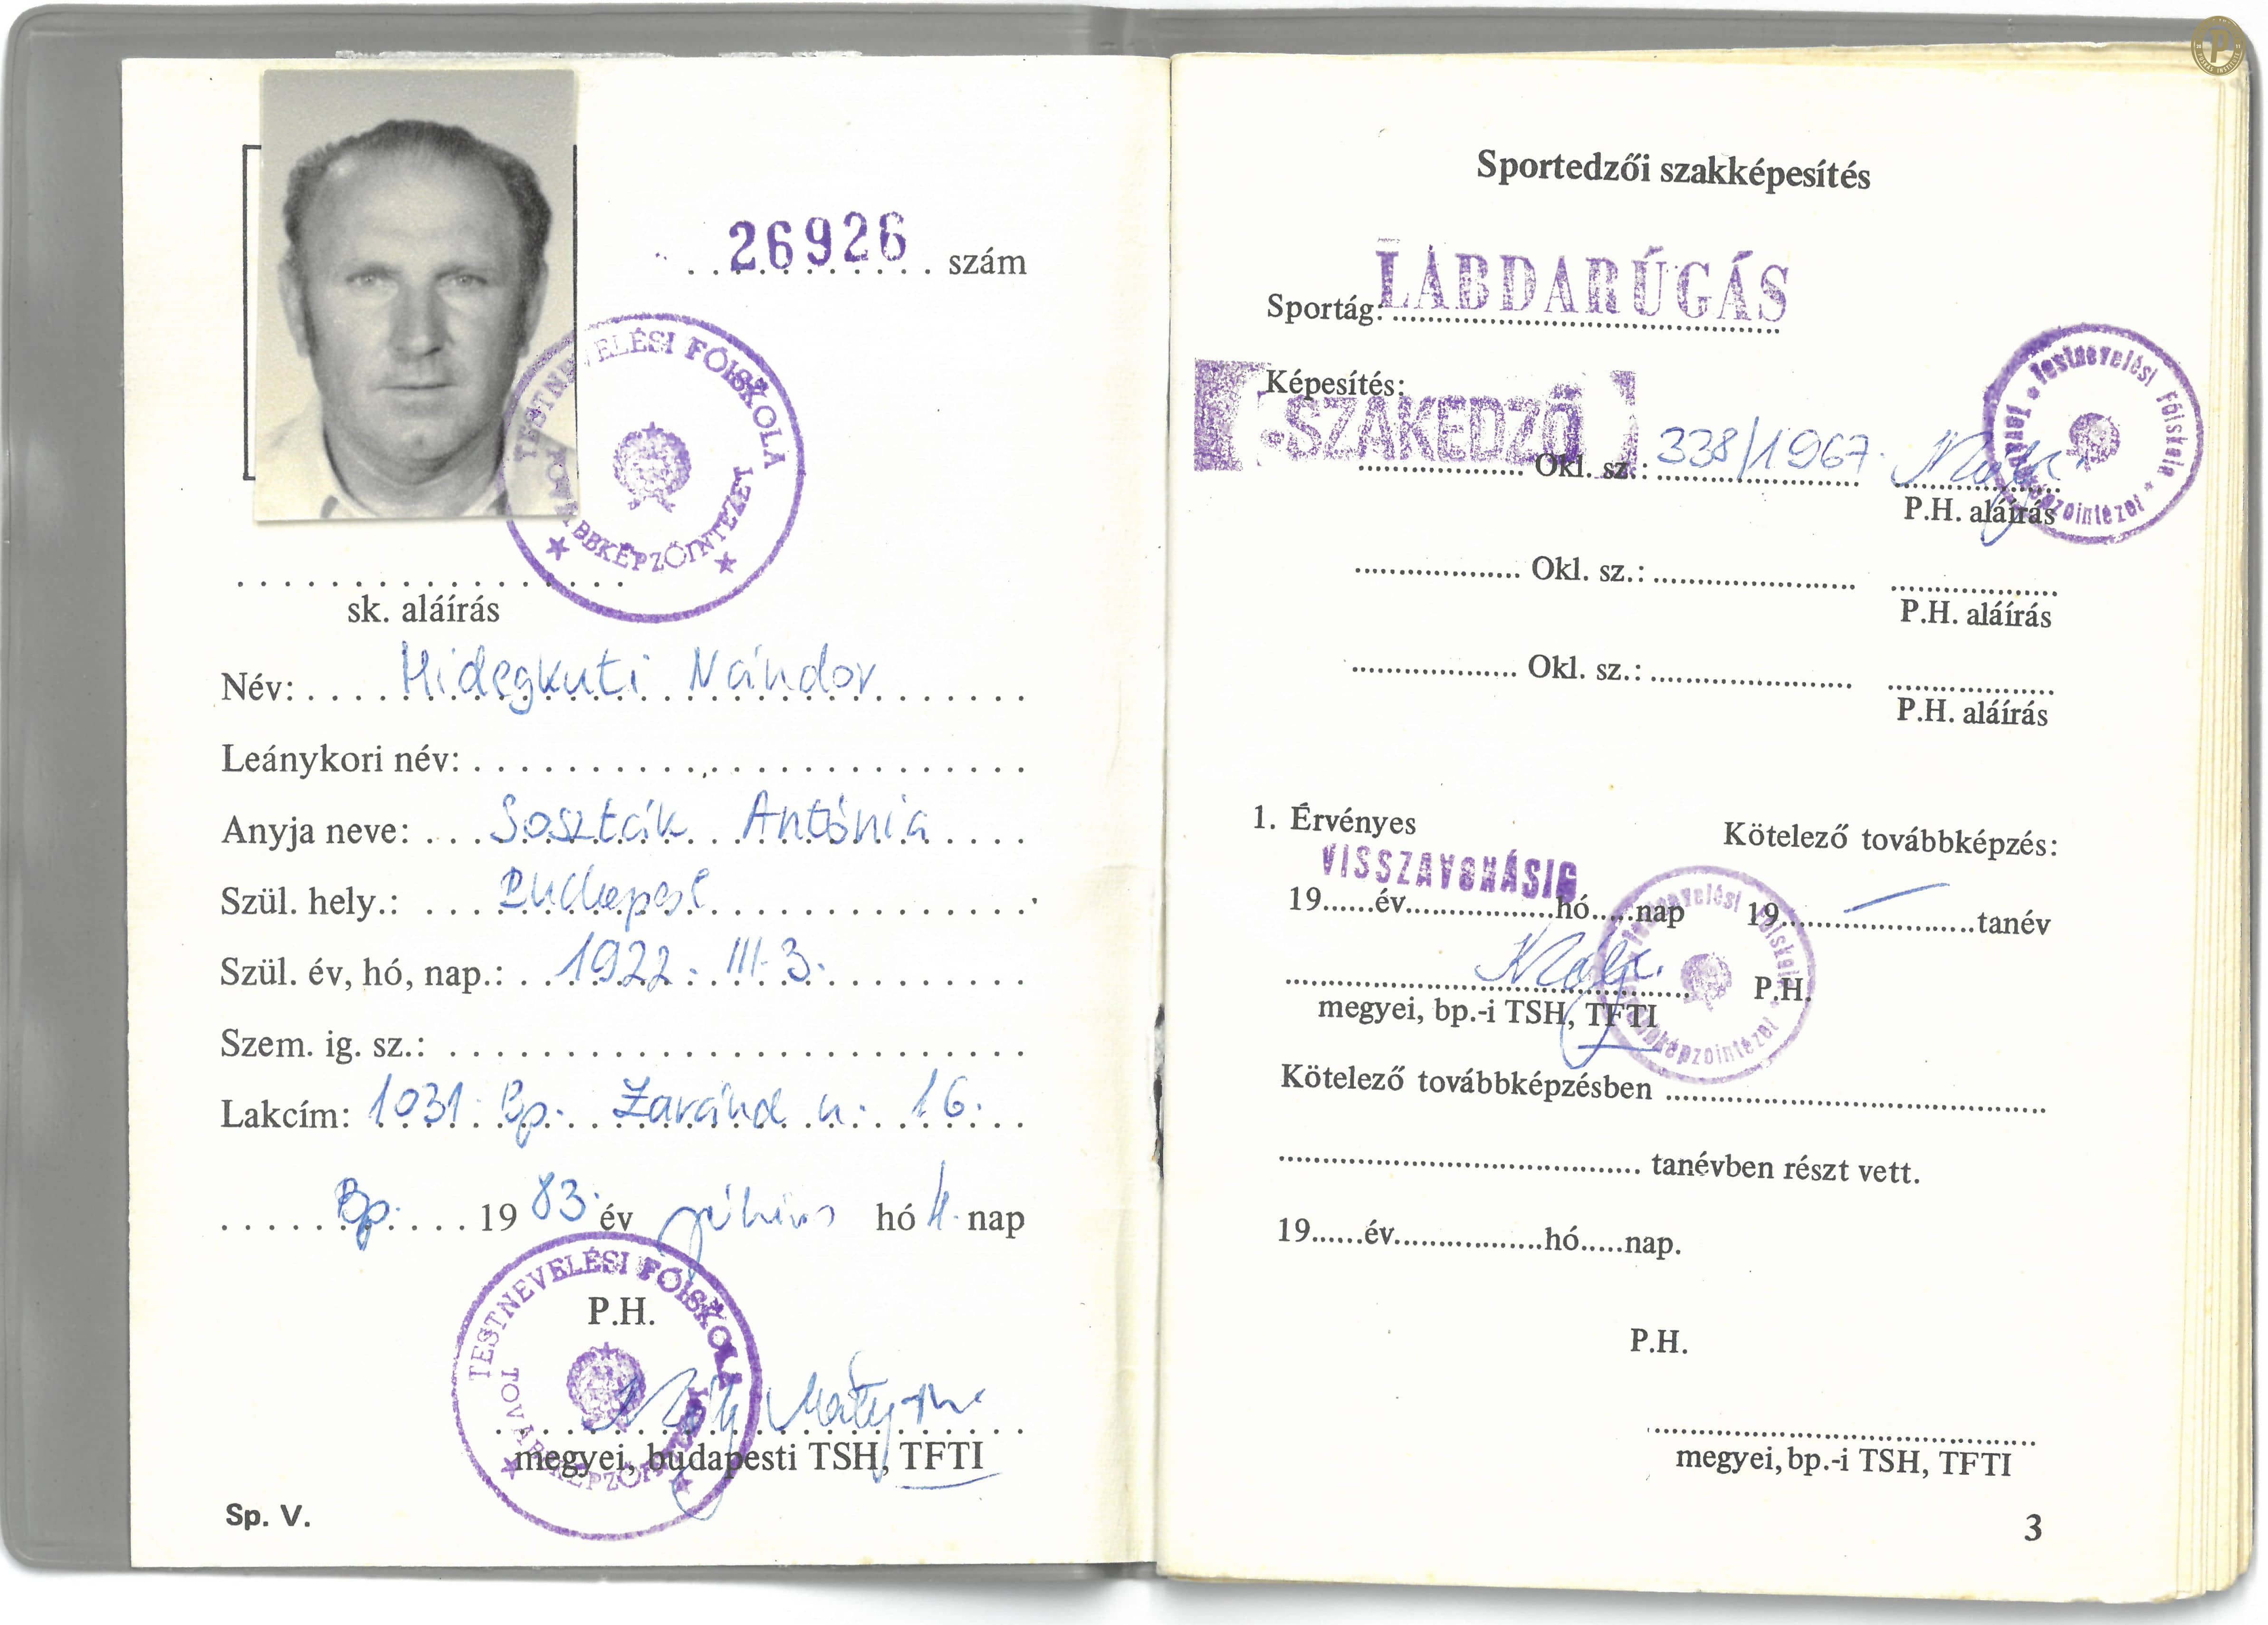 26926 szám
TESTNEVELÉSI FŐISKOLA
TOVÁBBKÉPZŐINTÉZET
sk. aláírás
Név: Hidegkuti Nándor
Leánykori név:
Anyja neve: Soszták Antónia
Szül. hely.: Budapest
Szül. év, hó, nap.: 1922. III. 3.
Szem. ig. sz.:
Lakcím: 1031. Bp. Zaránd u. 16.
Bp. 1983. év július hó 4. nap
TESTNEVELÉSI FŐISKOLA
TOVÁBBKÉPZŐINTÉZET
P.H.
megyei, budapesti TSH, TFTI
Sp. V.
Sportedzői szakképesítés
Sportág: LABDARÚGÁS
Képesítés:
SZAKEDZŐ Okl. sz.: 338/1967.
P.H. aláírás
Testnevelési Főiskola
Továbbképzőintézet
Okl. sz.:
P.H. aláírás
Okl. sz.:
P.H. aláírás
1. Érvényes Kötelező továbbképzés:
VISSZAVONÁSIG
19......év..................hó.....nap 19 tanév
P.H.
Testnevelési Főiskola
Továbbképzőintézet
megyei, bp.-i TSH, TFTI
Kötelező továbbképzésben
tanévben részt vett.
19......év..................hó.....nap.
P.H.
megyei, bp.-i TSH, TFTI
3